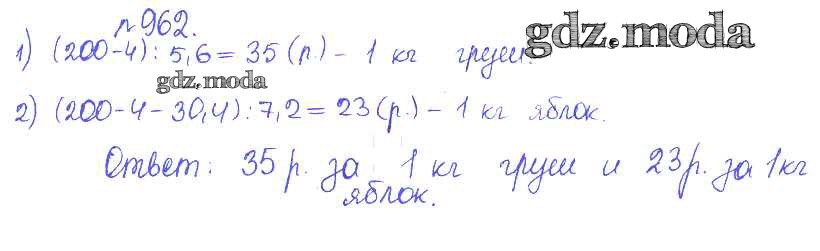 № 962.
1) (200-4): 5,6 = 35 (р.) - 1 кг груш.
gdz.moda
gdz.moda
2) (200-4-30,4): 7,2 = 23 (р.) - 1 кг яблок.
Ответ: 35 р. за 1 кг груш и 23 р. за 1 кг
яблок.